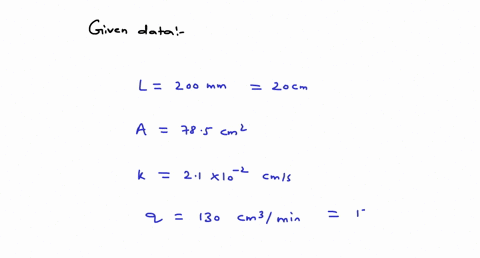 Given data:-
L = 200 mm = 20cm
A = 78.5 cm²
k = 2.1 ×10⁻² cm/s
q = 130 cm³/min =